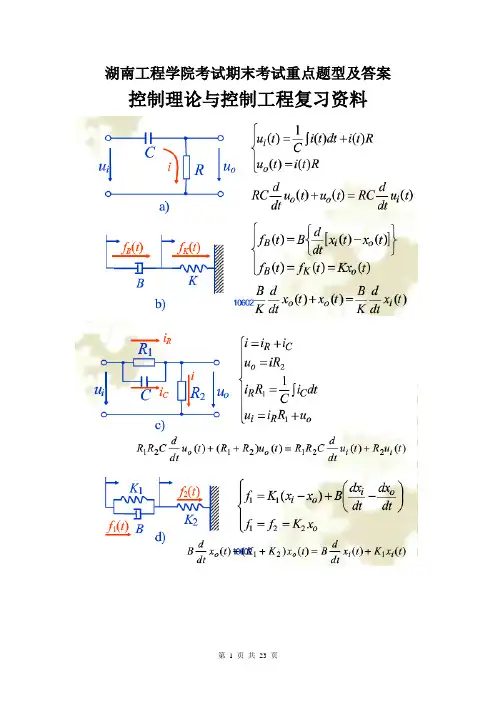 湖南工程学院考试期末考试重点题型及答案
控制理论与控制工程复习资料
C
R
i
u_i
u_o
a)
u_i(t) = 1/C ∫ i(t)dt + i(t)R
u_o(t) = i(t)R
RC d/dt u_o(t) + u_o(t) = RC d/dt u_i(t)
f_B(t)
f_K(t)
B
K
b)
f_B(t) = B { d/dt [x_i(t) − x_o(t)] }
f_B(t) = f_K(t) = Kx_o(t)
B/K d/dt x_o(t) + x_o(t) = B/K d/dt x_i(t)
i_R
R_1
u_i
C
i_C
i
R_2
u_o
c)
i = i_R + i_C
u_o = iR_2
i_R R_1 = 1/C ∫ i_C dt
u_i = i_R R_1 + u_o
R_1R_2C d/dt u_o(t) + (R_1 + R_2)u_o(t) = R_1R_2C d/dt u_i(t) + R_2u_i(t)
K_1
f_2(t)
B
K_2
f_1(t)
d)
f_1 = K_1(x_i − x_o) + B(dx_i/dt − dx_o/dt)
f_1 = f_2 = K_2 x_o
B d/dt x_o(t) + (K_1 + K_2)x_o(t) = B d/dt x_i(t) + K_1x_i(t)
第 1 页 共 23 页